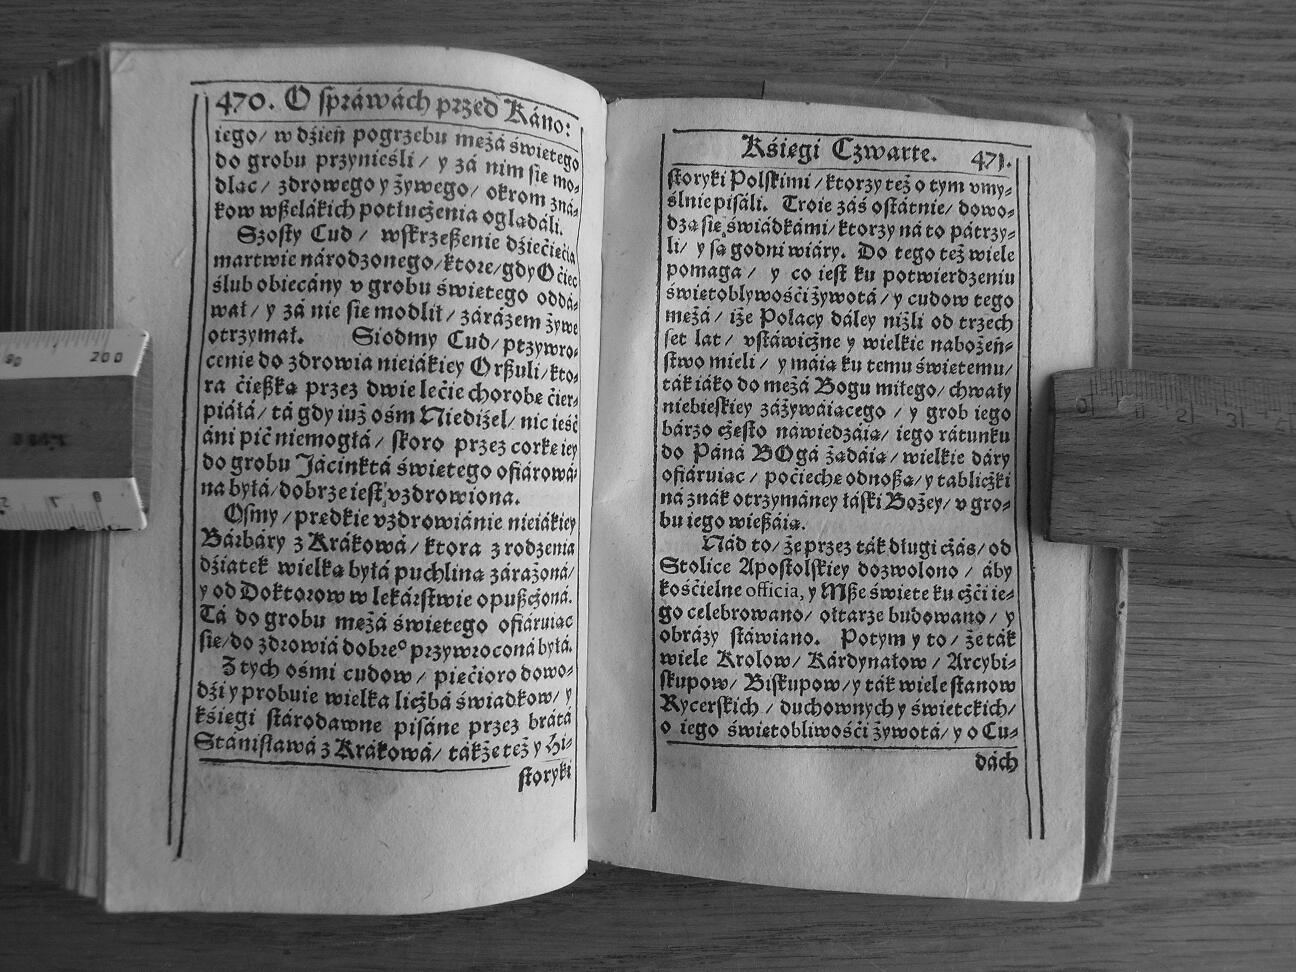 470. O spráwách przed Káno:
iego/ w dźień pogrzebu mężá świętego
do grobu przynieśli/ y zá nim się mo-
dląc/ zdrowego y żywego/ okrom zná-
kow wßelákich potłuczenia oglądáli.
Szosty Cud/ wskrzeßenie dźiećięćia
martwie národzonego/ ktore/ gdy Oćiec
ślub obiecány v grobu świętego oddá-
wał/ y zá nie się modlił/ zárázem żywe
otrzymał. Siodmy Cud/ przywro-
cenie do zdrowia nieiákiey Orßuli/ kto-
ra ćießką przez dwie lećie chorobę ćier-
piáłá/ tá gdy iuż ośm Niedźiel/ nic ieść
áni pić niemogłá/ skoro przez corkę iey
do grobu Jácinktá świętego ofiárowá-
na byłá/ dobrze iest vzdrowiona.
Osmy/ prędkie vzdrowiánie nieiákiey
Bárbáry z Krákowá/ ktora z rodzenia
dźiatek wielką byłá puchliną zárażoná/
y od Doktorow w lekárstwie opußczoná.
Tá do grobu mężá świętego ofiáruiąc
się/ do zdrowiá dobreº przywroconá byłá.
Z tych ośmi cudow/ pięćioro dowo-
dźi y probuie wielka liczbá świadkow/ y
kśięgi stárodawne pisáne przez brátá
Stánisławá z Krákowá/ tákże też y Hi-
storyki
Kśięgi Czwarte. 471.
storyki Polskimi/ ktorzy też o tym vmy-
ślnie pisáli. Troie záś ostátnie/ dowo-
dzą się świádkámi/ ktorzy ná to pátrzy-
li/ y są godni wiáry. Do tego też wiele
pomaga/ y co iest ku potwierdzeniu
świętoblywośći żywotá/ y cudow tego
mężá/ iże Polacy dáley niżli od trzech
set lat/ vstáwiczne y wielkie nabożeń-
stwo mieli/ y máią ku temu świętemu/
ták iáko do mężá Bogu miłego/ chwały
niebieskiey záżywáiącego/ y grob iego
bárzo często náwiedzáią/ iego rátunku
do Páná BOgá żądáią/ wielkie dáry
ofiáruiąc/ poćiechę odnoßą/ y tabliczki
ná znák otrzymáney łáski Bożey/ v gro-
bu iego wießáią.
Nád to/ że przez ták długi czás/ od
Stolice Apostolskiey dozwolono/ áby
kośćielne officia, y Mße święte ku czći ie-
go celebrowano/ ołtarze budowano/ y
obrázy stáwiano. Potym y to/ że ták
wiele Krolow/ Kárdynałow/ Arcybi-
skupow/ Biskupow/ y ták wiele stanow
Rycerskich/ duchownych y świetckich/
o iego świętobliwośći żywotá/ y o Cu-
dách